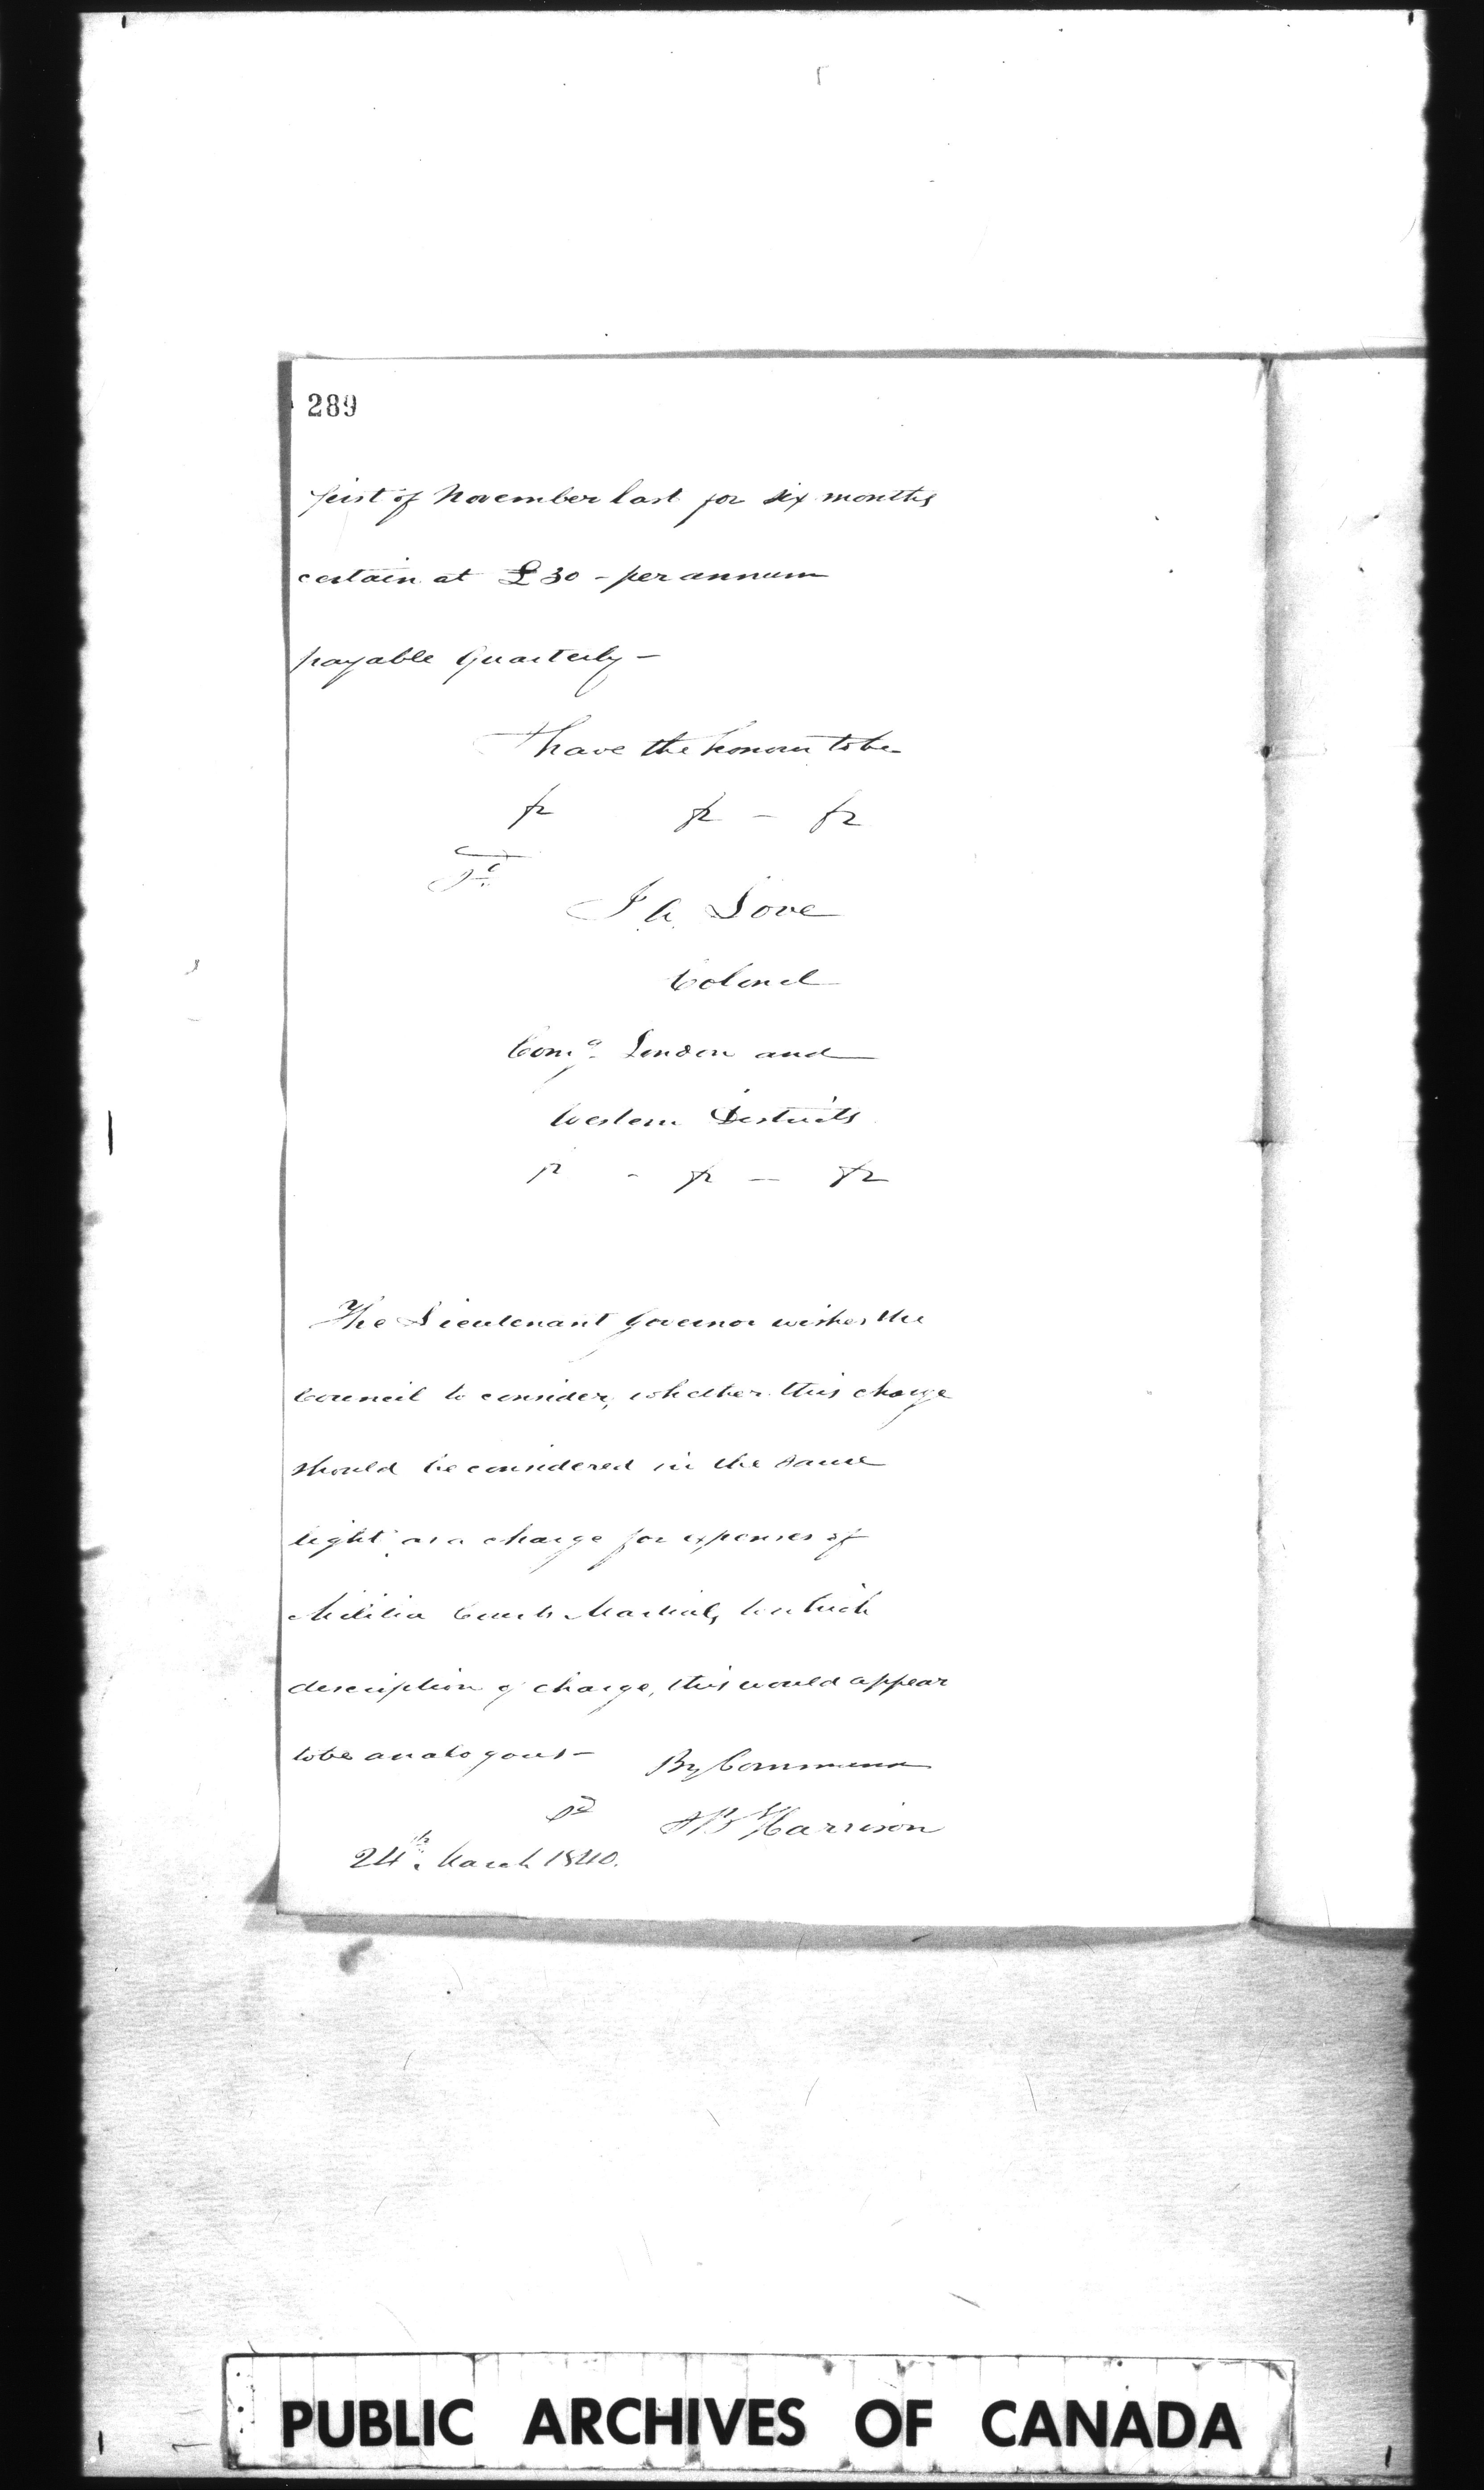 289
first of November last for six months
certain at £30 - per annum
payable Quarterly -
I have the honour to be
&c &c - &c
Sd.
J. A. Love
Colonel
Comg. London and
Western Districts
&c - &c - &c
The Lieutenant Governor wishes the
Council to consider, whether this charge
should be considered in the same
light as a charge for expenses of
Militia Courts Martial, to which
description of charge, this would appear
to be analogous - By Command
Sd S B Harrison
24th. March 1840.
PUBLIC ARCHIVES OF CANADA